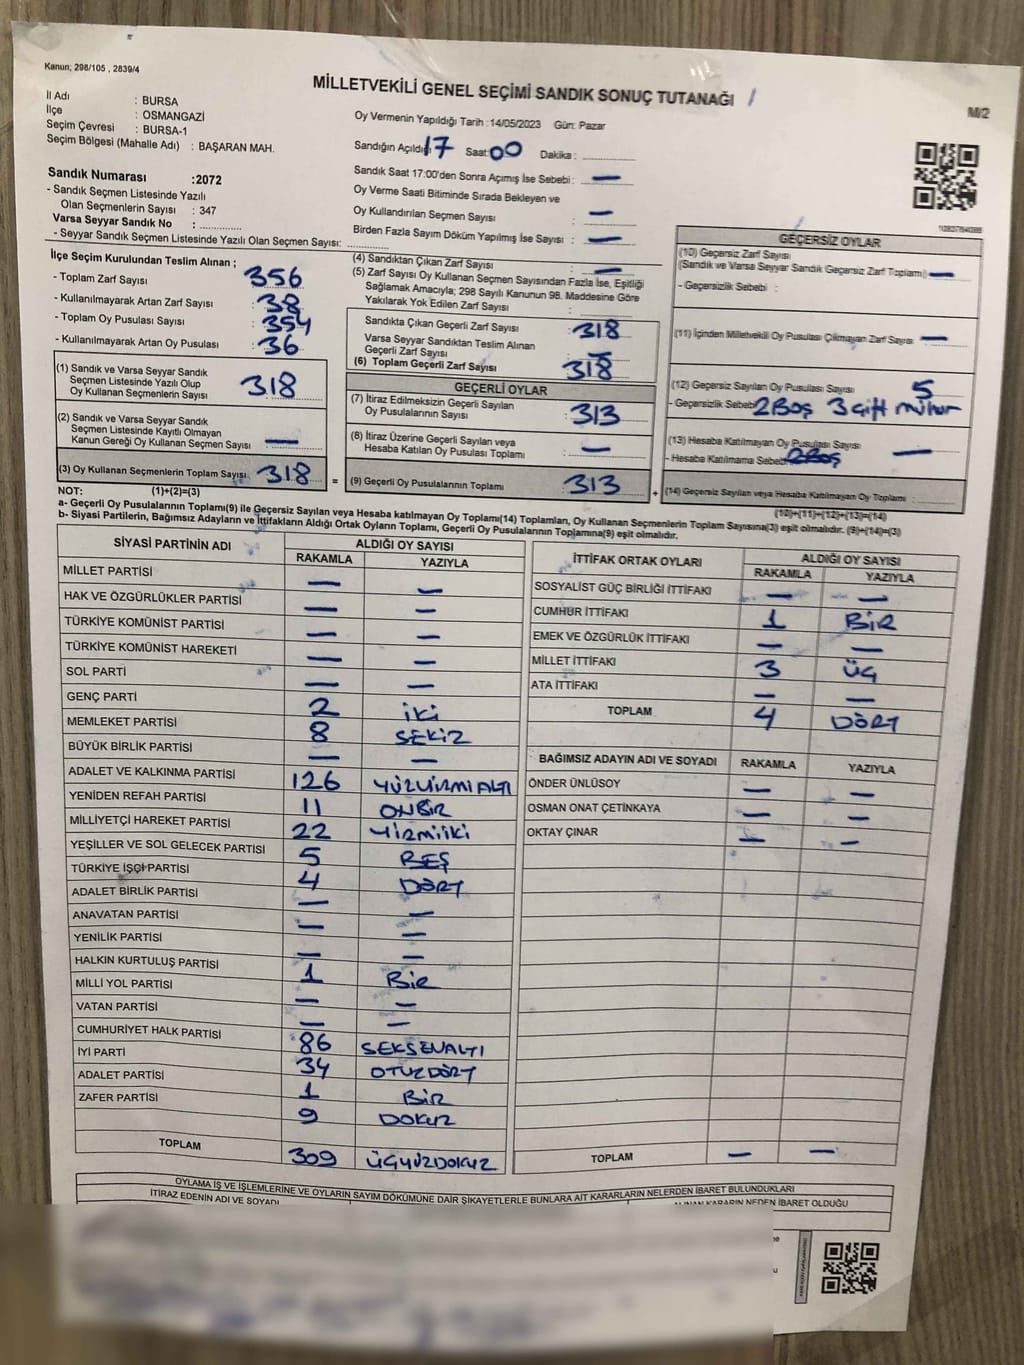 Kanun; 298/105 , 2839/4
MİLLETVEKİLİ GENEL SEÇİMİ SANDIK SONUÇ TUTANAĞI /
M/2
İl Adı : BURSA
İlçe : OSMANGAZİ
Seçim Çevresi : BURSA-1
Seçim Bölgesi (Mahalle Adı) : BAŞARAN MAH.
Sandık Numarası :2072
- Sandık Seçmen Listesinde Yazılı
Olan Seçmenlerin Sayısı : 347
Varsa Seyyar Sandık No : ............
- Seyyar Sandık Seçmen Listesinde Yazılı Olan Seçmen Sayısı: ............
Oy Vermenin Yapıldığı Tarih :14/05/2023 Gün: Pazar
Sandığın Açıldığı 17 Saat: 00 Dakika: ............
Sandık Saat 17:00'den Sonra Açılmış İse Sebebi : —
Oy Verme Saati Bitiminde Sırada Bekleyen ve
Oy Kullandırılan Seçmen Sayısı : —
Birden Fazla Sayım Döküm Yapılmış İse Sayısı : —
İlçe Seçim Kurulundan Teslim Alınan ;
- Toplam Zarf Sayısı : 356
- Kullanılmayarak Artan Zarf Sayısı : 38
- Toplam Oy Pusulası Sayısı : 354
- Kullanılmayarak Artan Oy Pusulası : 36
(1) Sandık ve Varsa Seyyar Sandık
Seçmen Listesinde Yazılı Olup
Oy Kullanan Seçmenlerin Sayısı : 318
(2) Sandık ve Varsa Seyyar Sandık
Seçmen Listesinde Kayıtlı Olmayan
Kanun Gereği Oy Kullanan Seçmen Sayısı : —
(3) Oy Kullanan Seçmenlerin Toplam Sayısı : 318
(1)+(2)=(3)
(4) Sandıktan Çıkan Zarf Sayısı : —
(5) Zarf Sayısı Oy Kullanan Seçmen Sayısından Fazla İse, Eşitliği
Sağlamak Amacıyla; 298 Sayılı Kanunun 98. Maddesine Göre
Yakılarak Yok Edilen Zarf Sayısı : ............
Sandıkta Çıkan Geçerli Zarf Sayısı : 318
Varsa Seyyar Sandıktan Teslim Alınan
Geçerli Zarf Sayısı : —
(6) Toplam Geçerli Zarf Sayısı : 318
GEÇERLİ OYLAR
(7) İtiraz Edilmeksizin Geçerli Sayılan
Oy Pusulalarının Sayısı : 313
(8) İtiraz Üzerine Geçerli Sayılan veya
Hesaba Katılan Oy Pusulası Toplamı : —
= (9) Geçerli Oy Pusulalarının Toplamı : 313
GEÇERSİZ OYLAR
(10) Geçersiz Zarf Sayısı
(Sandık ve Varsa Seyyar Sandık Geçersiz Zarf Toplamı) —
- Geçersizlik Sebebi :
(11) İçinden Milletvekili Oy Pusulası Çıkmayan Zarf Sayısı —
(12) Geçersiz Sayılan Oy Pusulası Sayısı 5
- Geçersizlik Sebebi 2 BOŞ 3 Çift mühür
(13) Hesaba Katılmayan Oy Pusulası Sayısı —
- Hesaba Katılmama Sebebi 2 BOŞ
+ (14) Geçersiz Sayılan veya Hesaba Katılmayan Oy Toplamı : ............
(10)+(11)+(12)+(13)=(14)
NOT:
a- Geçerli Oy Pusulalarının Toplamı(9) ile Geçersiz Sayılan veya Hesaba katılmayan Oy Toplamı(14) Toplamları, Oy Kullanan Seçmenlerin Toplam Sayısına(3) eşit olmalıdır. (9)+(14)=(3)
b- Siyasi Partilerin, Bağımsız Adayların ve İttifakların Aldığı Ortak Oyların Toplamı, Geçerli Oy Pusulalarının Toplamına(9) eşit olmalıdır.
SİYASİ PARTİNİN ADI ALDIĞI OY SAYISI
RAKAMLA YAZIYLA
MİLLET PARTİSİ — —
HAK VE ÖZGÜRLÜKLER PARTİSİ — —
TÜRKİYE KOMÜNİST PARTİSİ — —
TÜRKİYE KOMÜNİST HAREKETİ — —
SOL PARTİ — —
GENÇ PARTİ 2 İKİ
MEMLEKET PARTİSİ 8 SEKİZ
BÜYÜK BİRLİK PARTİSİ — —
ADALET VE KALKINMA PARTİSİ 126 YÜZYİRMİALTI
YENİDEN REFAH PARTİSİ 11 ONBİR
MİLLİYETÇİ HAREKET PARTİSİ 22 YİRMİİKİ
YEŞİLLER VE SOL GELECEK PARTİSİ 5 BEŞ
TÜRKİYE İŞÇİ PARTİSİ 4 DÖRT
ADALET BİRLİK PARTİSİ —
ANAVATAN PARTİSİ — —
YENİLİK PARTİSİ —
HALKIN KURTULUŞ PARTİSİ — —
MİLLİ YOL PARTİSİ 1 BİR
VATAN PARTİSİ — —
CUMHURİYET HALK PARTİSİ — —
86 SEKSENALTI
İYİ PARTİ 34 OTUZDÖRT
ADALET PARTİSİ 1 BİR
ZAFER PARTİSİ 9 DOKUZ
TOPLAM 309 ÜÇYÜZDOKUZ
İTTİFAK ORTAK OYLARI ALDIĞI OY SAYISI
RAKAMLA YAZIYLA
SOSYALİST GÜÇ BİRLİĞİ İTTİFAKI — —
CUMHUR İTTİFAKI 1 BİR
EMEK VE ÖZGÜRLÜK İTTİFAKI — —
MİLLET İTTİFAKI 3 ÜÇ
ATA İTTİFAKI — —
TOPLAM 4 DÖRT
BAĞIMSIZ ADAYIN ADI VE SOYADI RAKAMLA YAZIYLA
ÖNDER ÜNLÜSOY — —
OSMAN ONAT ÇETİNKAYA — —
OKTAY ÇINAR — —
TOPLAM — —
OYLAMA İŞ VE İŞLEMLERİNE VE OYLARIN SAYIM DÖKÜMÜNE DAİR ŞİKAYETLERLE BUNLARA AİT KARARLARIN NELERDEN İBARET BULUNDUKLARI
İTİRAZ EDENİN ADI VE SOYADI ALINAN KARARIN NEDEN İBARET OLDUĞU